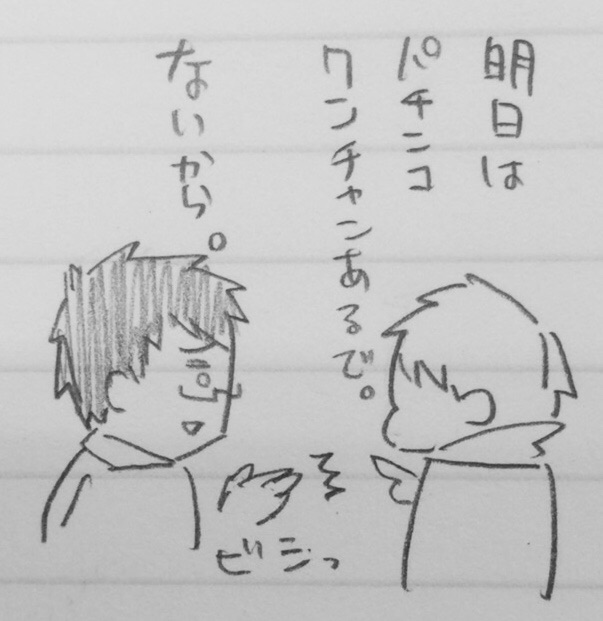 明日は
パチンコ
ワンチャンあるで。
ないから。
ビシっ